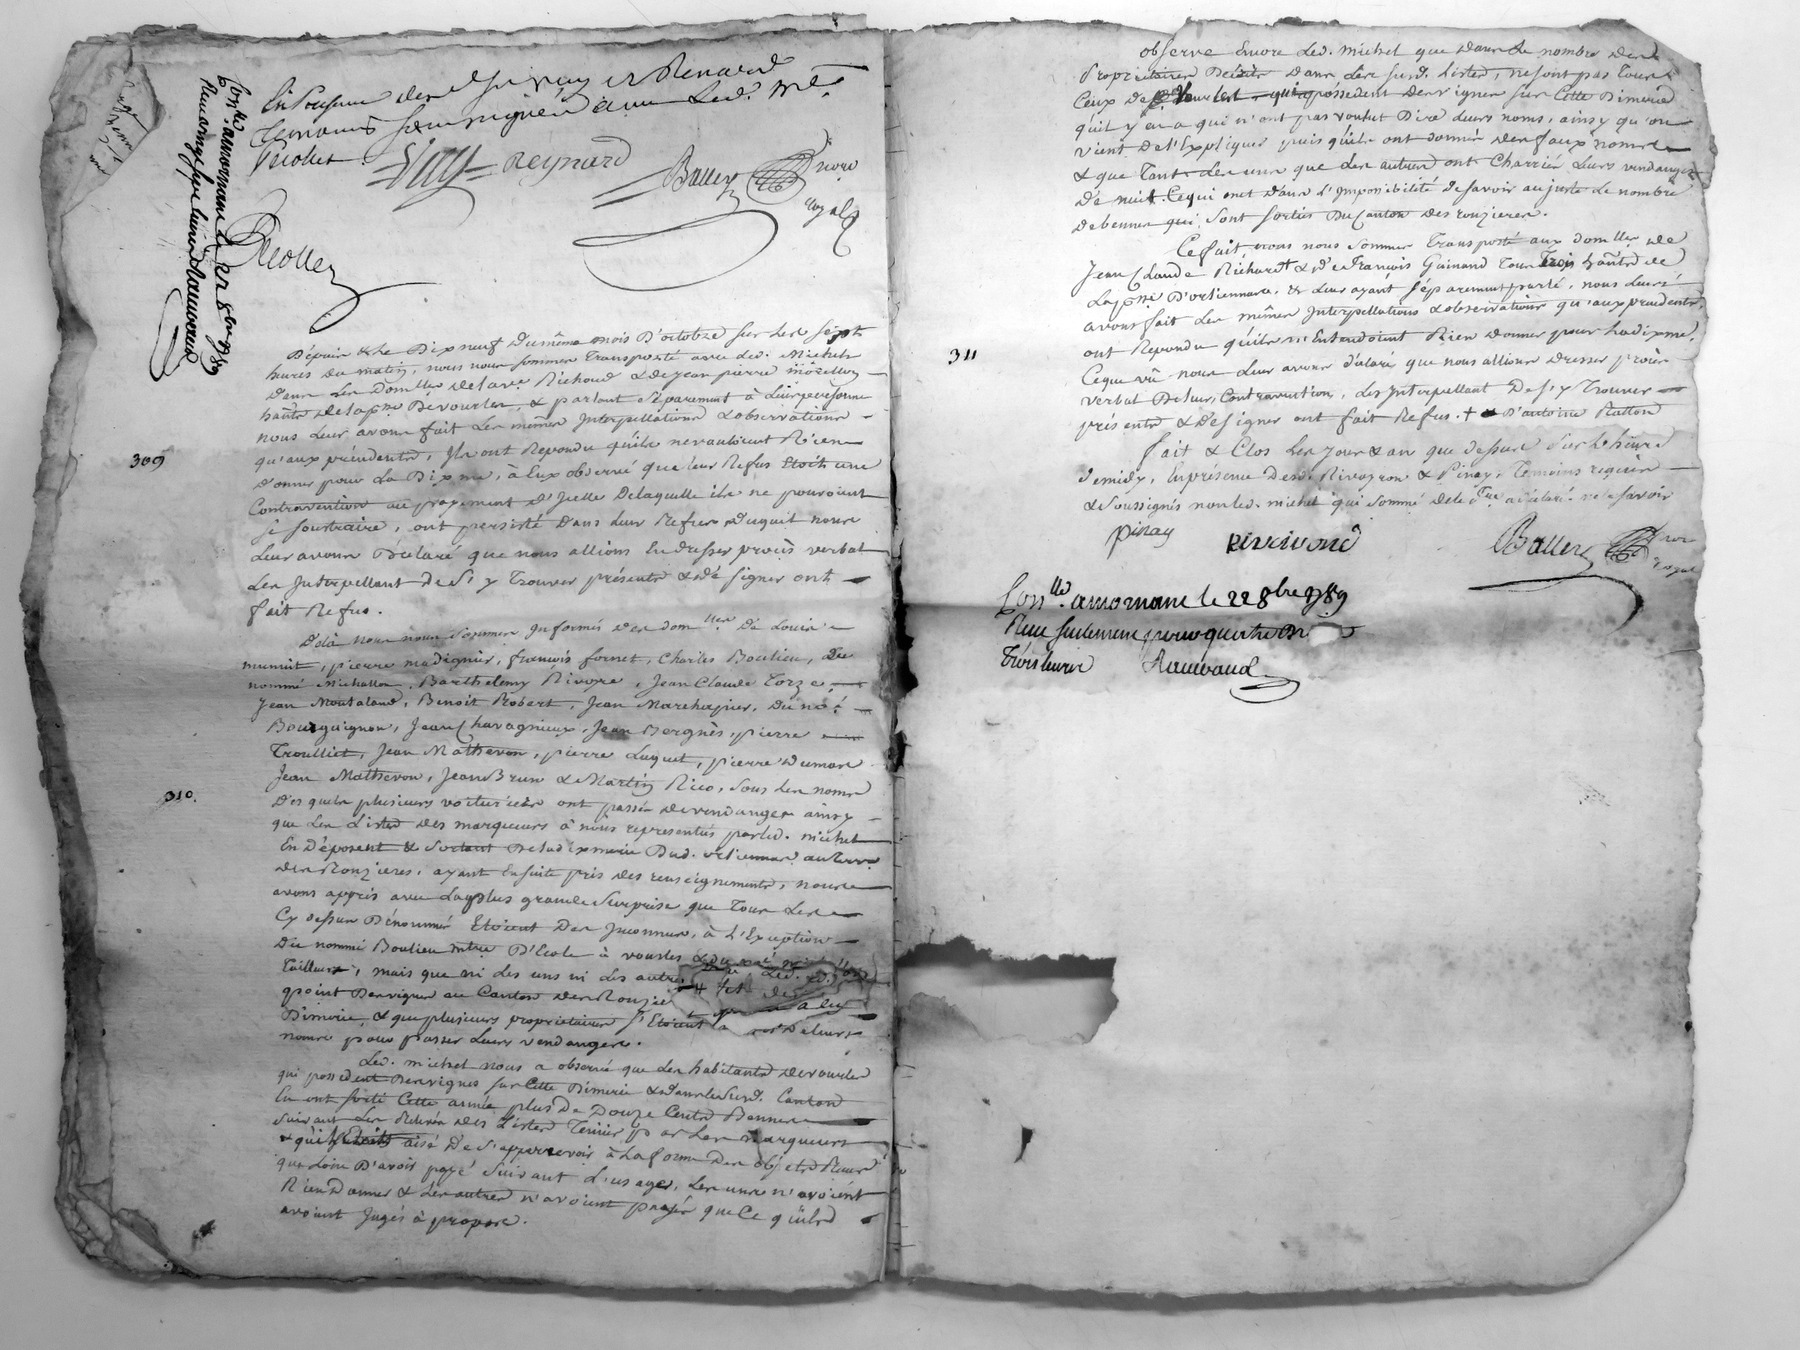 En présence des Srs pinay et Renard
Temoins soussignés avec Led. Me.
Recollet
Vinay Reynard Ballet nore
royal
Recollet
Conllé. a mornant le 22 8bre 1789
Depuis & le Dix neuf du même mois D'octobre sur les sept
heures du matin, nous nous sommes transporté avec led. Michel
dans les domlles de la ve Richoud & de jean pierre mozellon
hants de la pse De vourles, & parlant séparément à leurs personnes
nous leur avons fait les mêmes Interpellations & observations
309
qu'aux précédents, Ils ont Repondu qu'ils ne vouloient Rien
donner pour La Dixme, à Eux observé que leur Refus Etoit une
Contravention au payement d'Icelle De laquelle ils ne pouvoient
se soustraire, ont persisté Dans leur Refus, duquel nous
Leur avons Déclaré que nous allions En dresser procès verbal
Les Interpellant De S'y Trouver présents & de signer ont
fait Refus.
De là nous nous sommes Informés des domlles De Louis
pierre madignier, françois fornet, Charles Boulieu, Le
nommé Michallon, Barthelemy Rivoire, Jean Claude Torze
Jean Montaland, Benoit Robert, Jean Marchapier, Du né
Bourguignon, Jean Chavagnieux, Jean Bergnès, pierre
Troulliet, Jean Mathevon, pierre Luquet, pierre Dumas
Jean Mathevon, Jean Brun & Martin Rico, sous les noms
310.
Desquels plusieurs voituriers ont passés de vendanges ainsy
que Les Listes des marqueurs à nous representés par led. michel
En Déposent & Sortant De la dixmerie Dud. orliennas au Terr.
des Rouzieres, ayant Ensuite pris des renseignements, nous
avons appris avec La plus grande Surprise que Tous Les
Cy dessus Dénommés Etoient Des Inconnus, à L'Exception
Du nommé Boulieu mtre D'Ecole à vourles
Tailleur, mais que ni Les uns ni Les autres
point Des vignes au Canton des Rouzie
Dimerie, & que plusieurs propriétaires s'Etoient de Leurs
noms pour passer Leurs vendanges.
Led. michel nous a observé que les habitants de vourles
qui possedent Des vignes sur Cette Dimerie & dans le Susd. Canton
En ont sorti Cette année plus De Douze Cents Bennes
suivant Les Relevés des Listes Tenües par Les marqueurs
& qu'il Etoit aisé De s'appercevoir à La forme Des objets Reçus
que Loin D'avoir payé suivant L'usage, Les uns n'avoient
Rien Donné & Les autres n'avoient payés que Ce qu'ils
avoient Jugés à propos.
observe Encore Led. michel que dans le nombre des
Propriétaires Décrits Dans Les susd. Listes, ne sont pas Tous
Ceux De Vourles qui possedent Des vignes sur Cette Dimerie
qu'il y en a qui n'ont pas voulut Dire Leurs noms, ainsy qu'on
vient De l'Expliquer puis qu'ils ont donnés des faux noms
& que Tant Les uns que Les autres ont Charrié Leurs vendanges
De nuit. Ce qui met Dans L'Impossibilité De savoir au juste Le nombre
De bennes qui sont sorties Du Canton des rouzieres.
Ce fait nous nous sommes Transporté aux domlles de
Jean Claude Richard & de françois Guinand Tous Trois hants de
La pse D'orliennas, & Leur ayant séparement parlé, nous Leurs
avons fait Les mêmes Interpellations & observations qu'aux precedents
311
ont Repondu qu'ils n'Entendoient Rien donner pour la dixme,
Ce que vû nous Leur avons déclaré que nous allions dresser procès
verbal De leur Contravention, Les Interpellant De s'y Trouver
présents & De signer ont fait Refus. + & D'antoine Ratton
fait & Clos Les jour & an que dessus Sur L'heure
de midy, En présence Desd. Rivoyron & Pinay, Temoins requis
& Soussignés non led. michel qui sommé de le fre a déclaré ne le savoir
pinay Ballet nore
royal
Conllé. a mornant le 22 8bre 1789
Reçu seulement pour quatre
Trois livres Rauvaud